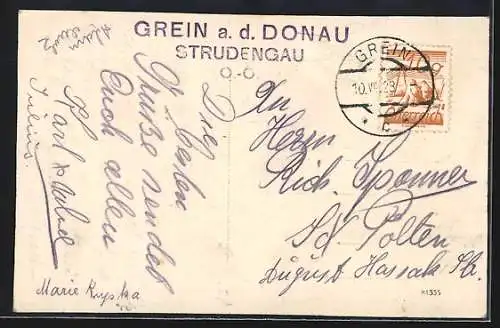 GREIN a. d. DONAU
STRUDENGAU
O.-Ö.
GREIN
10.VII.28
* b *
Die
besten
Grüße sendet
Euch allen
Karl
Julius.
Marie
An
Herrn
Rich. Sponner
St Pölten
August Hassak Str.
R1355